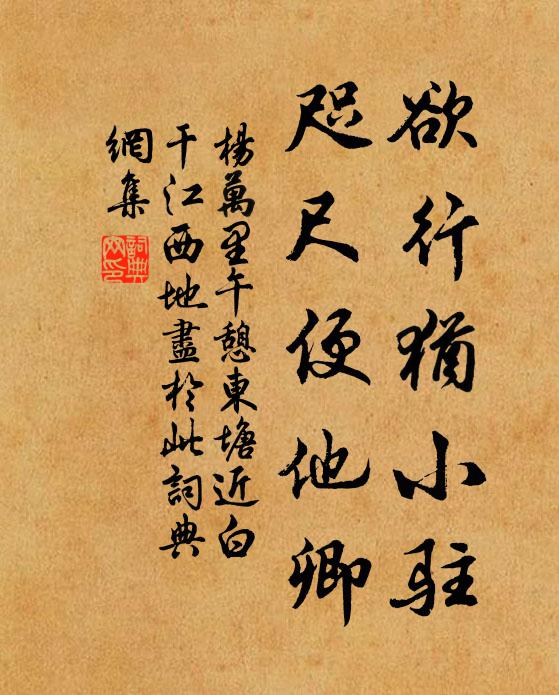 欲行猶小駐
咫尺便他卿
楊萬里午憩東塘近白
干江西地盡於此詞典
網集
詞典
网印